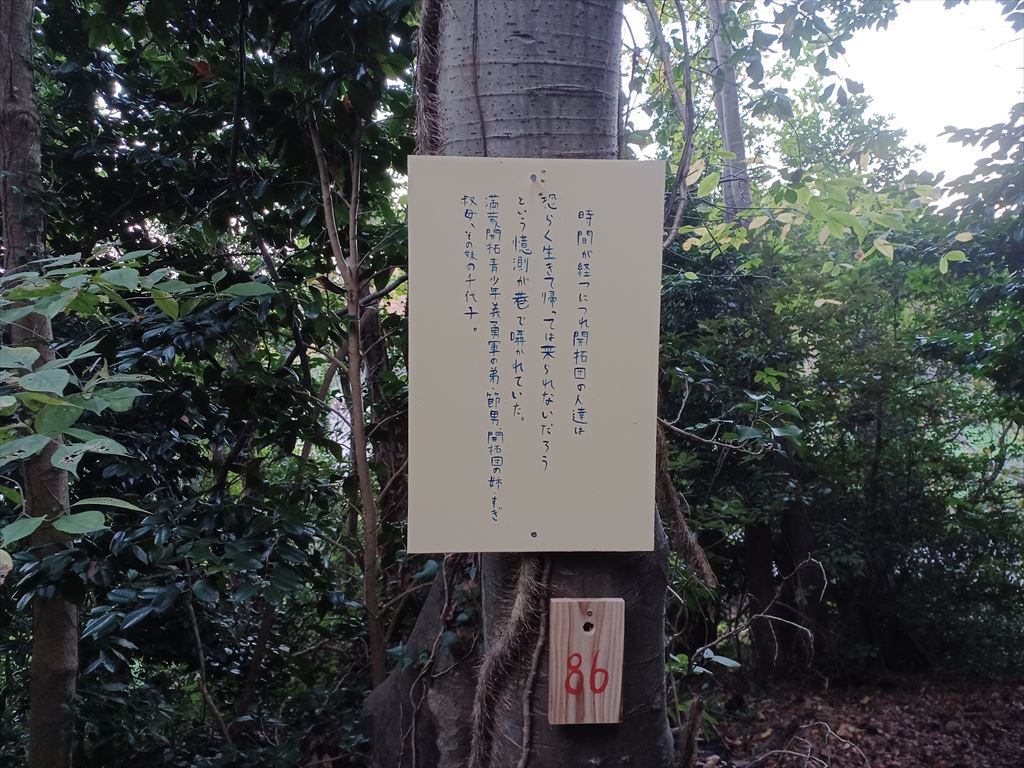 時間が経つにつれ開拓団の人達は
恐らく生きて帰っては来られないだろう
という憶測が巷で囁かれていた。
満蒙開拓青少年義勇軍の弟・節男、開拓団の姉・すぎ
叔母、その妹の千代子。
86